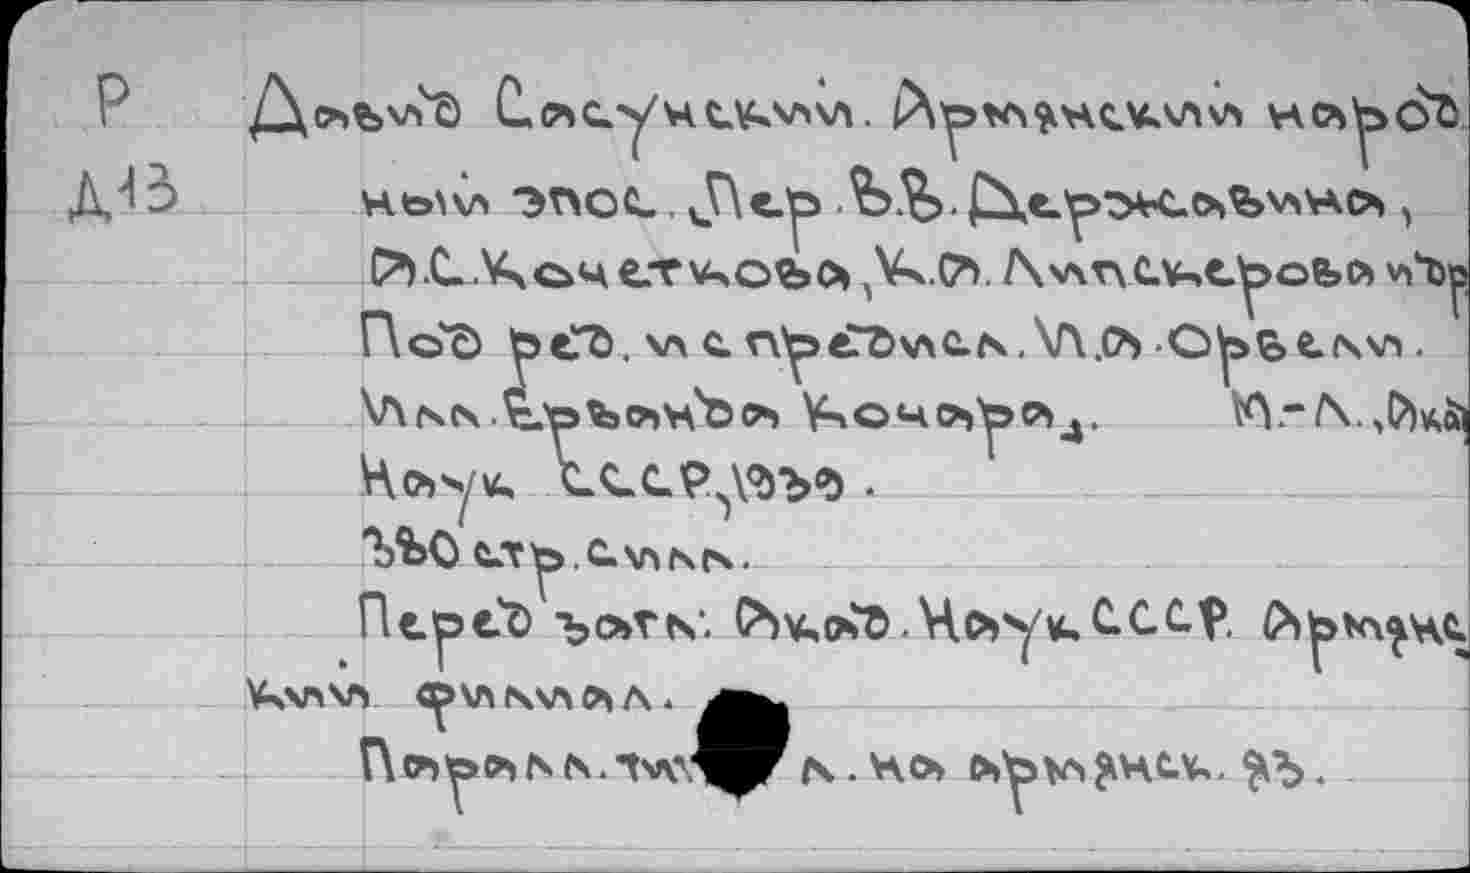 Р Давид Сасунский. Армянский народ
Д13 ный эпос. Пер. В.В. Державина,
А.С. Кочеткова, К.А. Липскерова и др
Под ред. и с предисл. И.А. Орбели.
Илл. Ерванда Кочара. М.-Л., Акад
Наук СССР, 1939.
330 стр. с илл.
Перед загл: Акад. Наук СССР. Армянс
кий филиал.
Параллл. л. на армянск. яз.